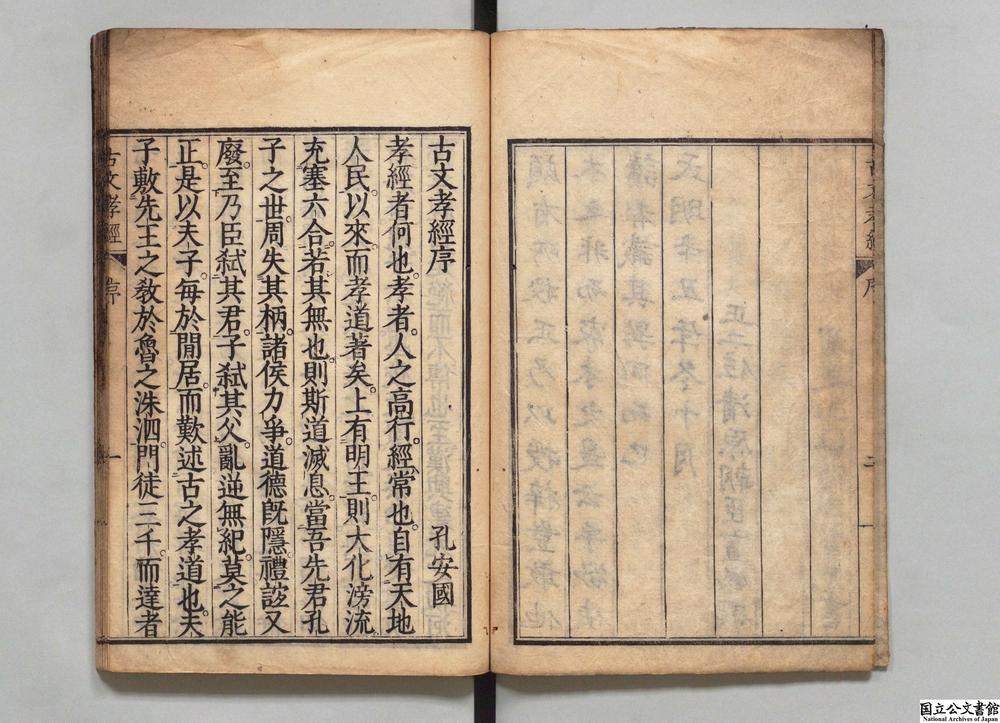 古文孝經序 孔安國
孝經者何也孝者人之高行經常也自有天地
人民以來而孝道著矣上有明王則大化滂流
充塞六合若其無也則斯道滅息當吾先君孔
子之世周失其柄諸侯力爭道德既隱禮誼又
廢至乃臣弑其君子弑其父亂逆無紀莫之能
正是以夫子每於閒居而歎述古之孝道也夫
子敷先王之教於魯之洙泗門徒三千而達者
古文孝經 序 一
国立公文書館
National Archives of Japan